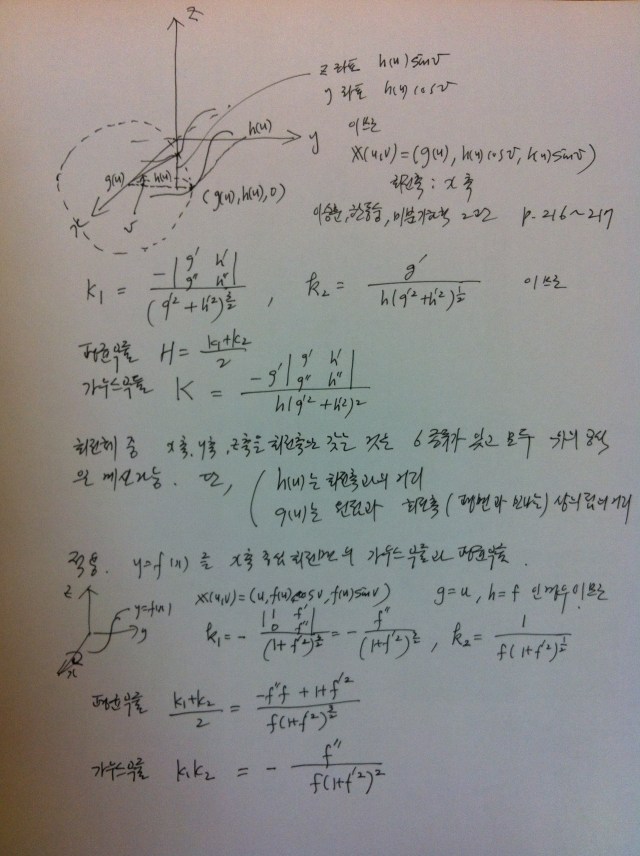 z
z 좌표 h(u) sin v
y 좌표 h(u) cos v
이므로
h(u)
y
𝕏(u,v) = (g(u), h(u) cos v, h(u) sin v)
g(u)
h(u)
(g(u), h(u), 0)
회전축 : x 축
x
v
미분기하학 2판 p. 216~217
k₁ = -|g' h'; g'' h''| / (g'² + h'²)^(3/2) , k₂ = g' / h(g'² + h'²)^(1/2) 이므로
평균곡률 H = (k₁+k₂)/2
가우스곡률 K = -g'|g' h'; g'' h''| / h(g'² + h'²)²
회전체 중 x축, y축, z축을 회전축으로 갖는 것은 6종류가 있고 모두 위의 공식
으로 계산가능. 단, ( h(u)는 회전축과의 거리
g(u)는 원점과 회전축(평면과 만나는) 상의 점의 거리
적용. y=f(x) 를 x축 중심 회전면의 가우스곡률과 평균곡률.
z
y=f(x)
y
x
𝕏(u,v) = (u, f(u) cos v, f(u) sin v) g=u, h=f 인 경우이므로
k₁ = -|1 f'; 0 f''| / (1+f'²)^(3/2) = -f'' / (1+f'²)^(3/2) , k₂ = 1 / f(1+f'²)^(1/2)
평균곡률 (k₁+k₂)/2 = (-f''f + 1+f'²) / f(1+f'²)^(3/2)
가우스곡률 k₁k₂ = - f'' / f(1+f'²)²